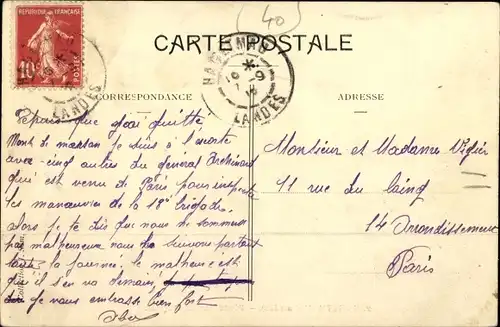 40
REPUBLIQUE FRANÇAISE
10
POSTES
CARTE POSTALE
LANDES
LANDES
CORRESPONDANCE
ADRESSE
Depuis que j'ai quitté
Mont de marsan je suis à l'escorte
avec cinq autres du general
qui est venu de Paris pour inspecté
les manoeuvres de la 18e brigade
alors je te dis que nous ne sommes
pas malheureux nous le suivons partout
toute la journée. le malheur c'est
qu'il s'en va demain
je nous embrasse bien fort
Monsieur et Madame
11 rue du Cinq
14 Arrondissement
Paris